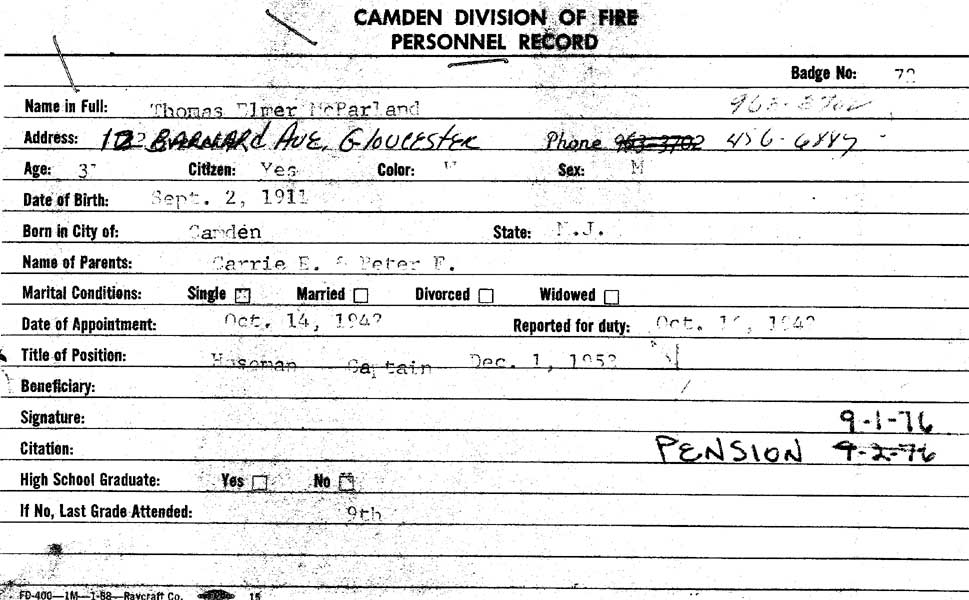 CAMDEN DIVISION OF FIRE
PERSONNEL RECORD
Badge No:
Name in Full: Thomas Elmer McParland 963-3702
Address: BARNARD AVE, GLOUCESTER Phone 963-3702 456-6887
Age: Citizen: Yes Color: Sex: M
Date of Birth: Sept. 2, 1911
Born in City of: Camden State: N.J.
Name of Parents: Carrie E. & Peter F.
Marital Conditions: Single Married Divorced Widowed
Date of Appointment: Oct. 14, Reported for duty: Oct.
Title of Position: Hoseman Captain Dec. 1,
Beneficiary:
Signature: 9-1-76
Citation: PENSION 9-2-76
High School Graduate: Yes No
If No, Last Grade Attended: 9th
FD-400—1M—1-68—Raycraft Co. 15